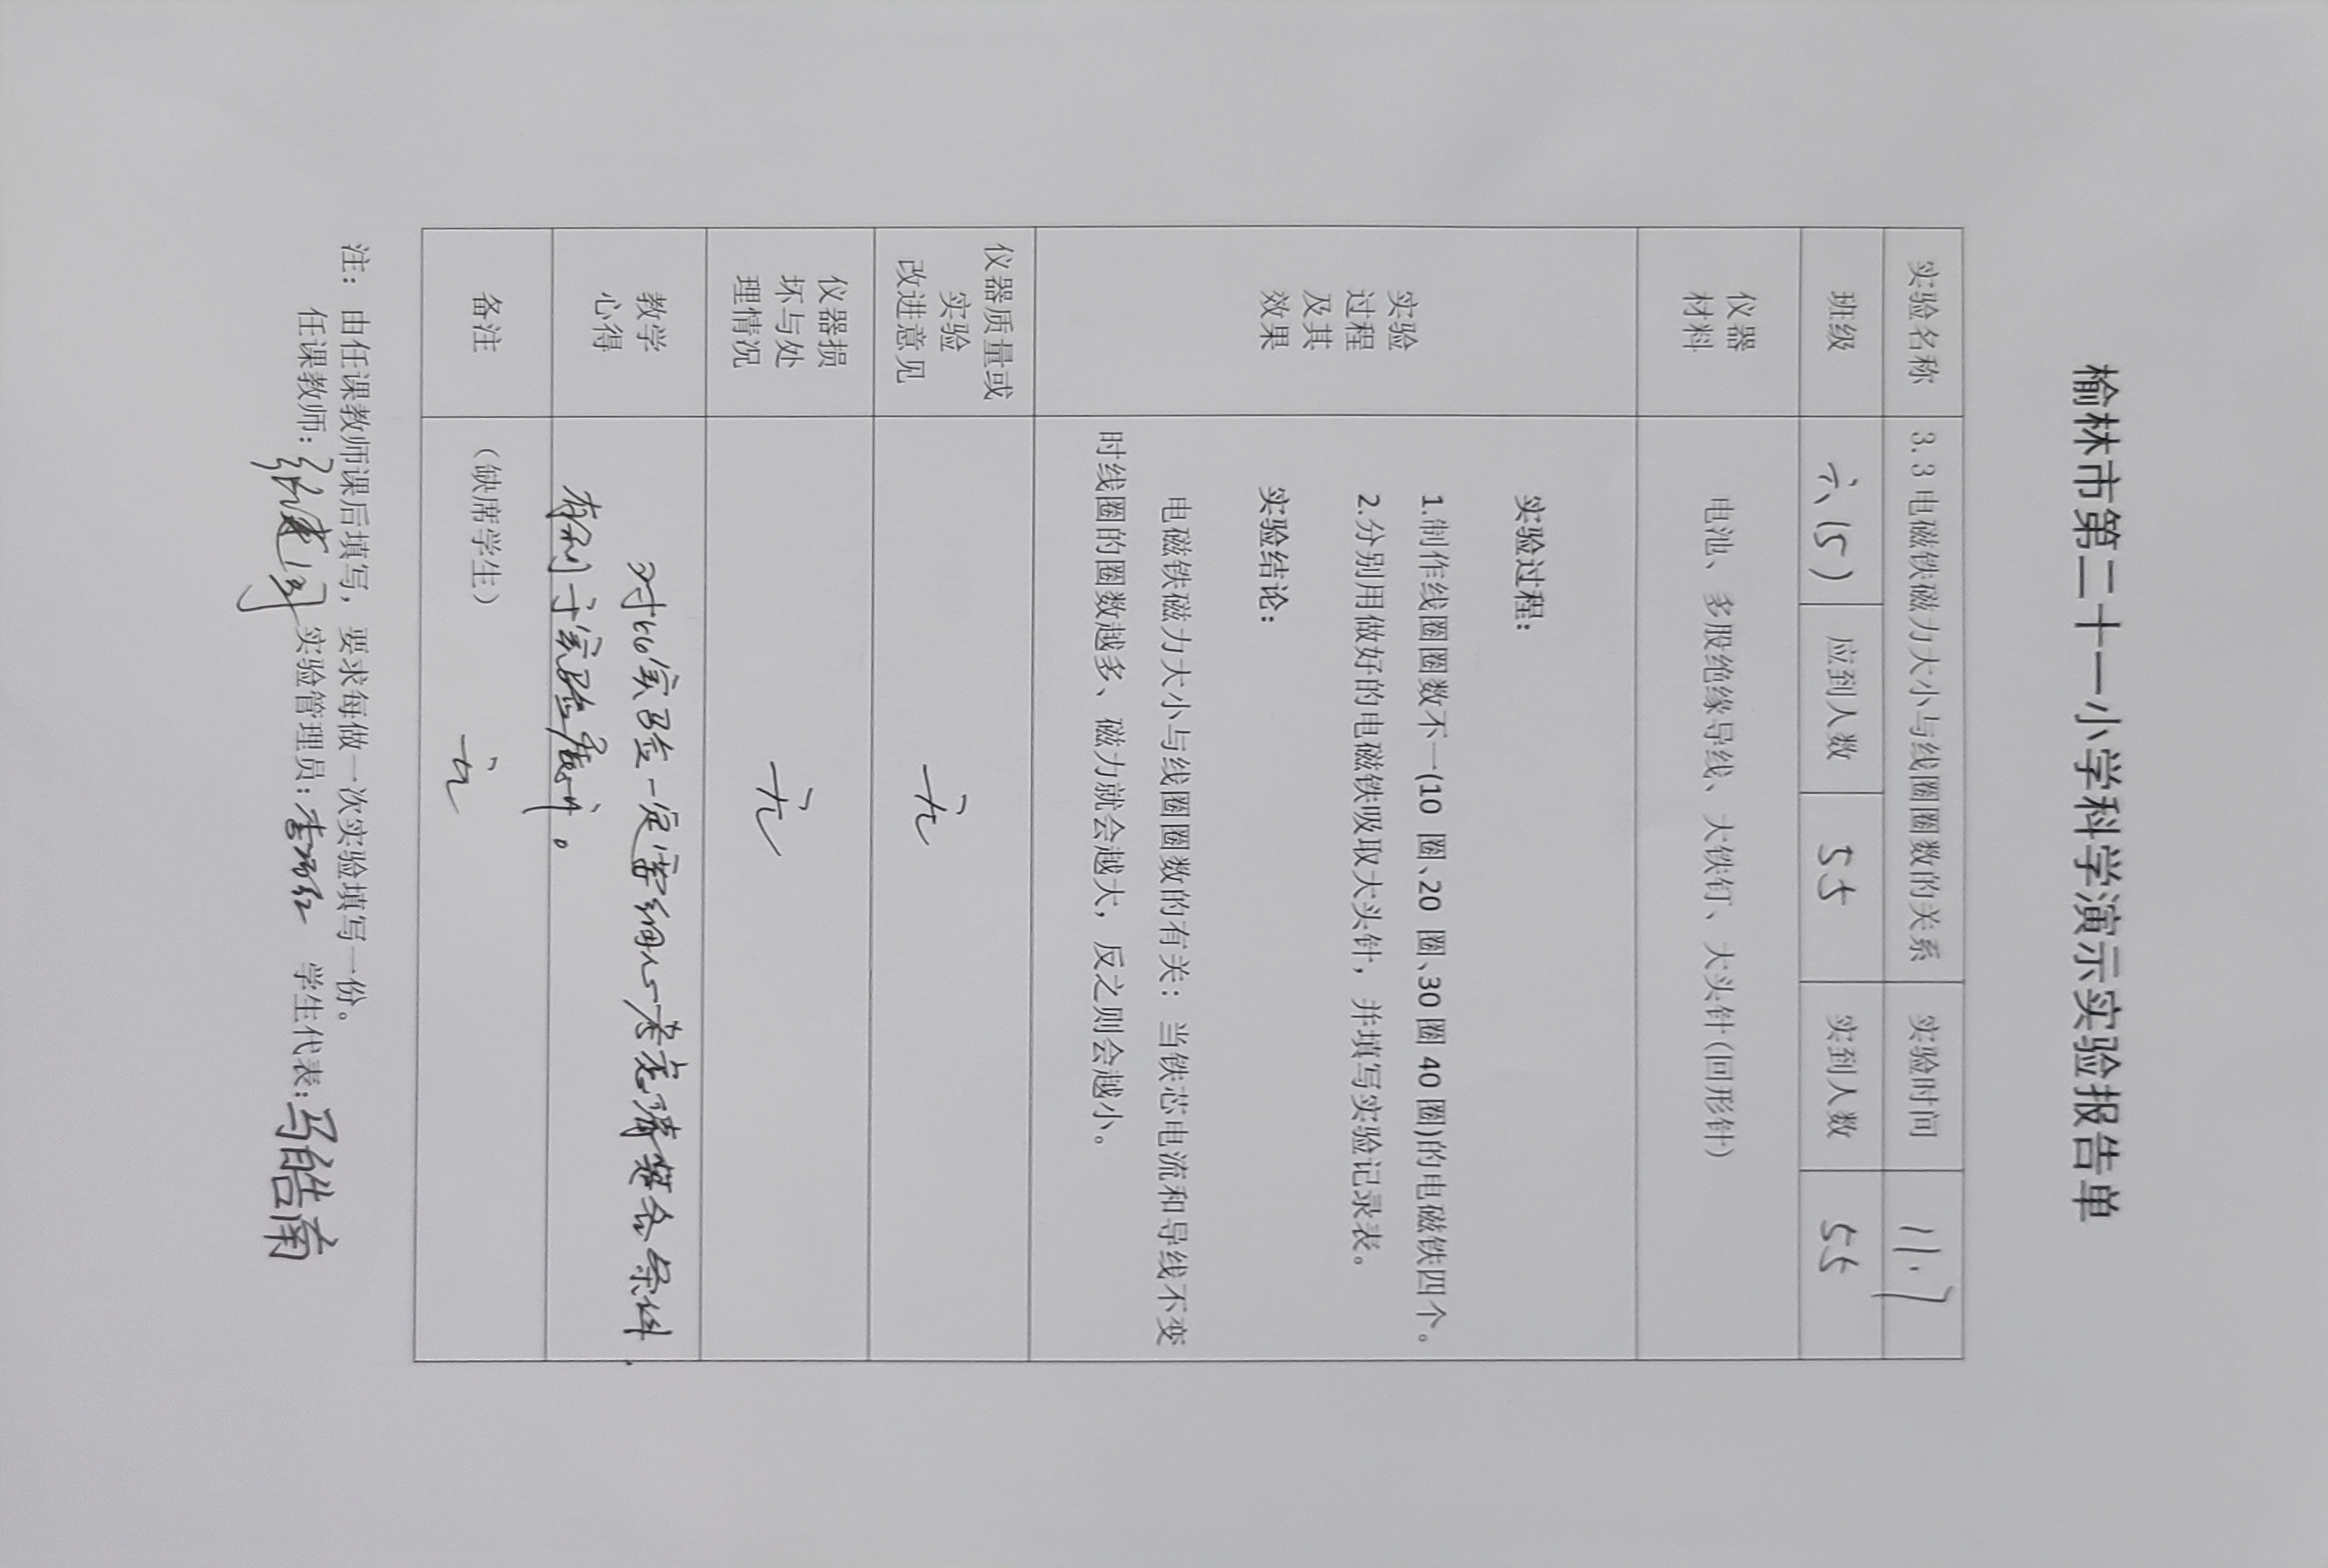 榆林市第二十一小学科学演示实验报告单
实验名称 3.3 电磁铁磁力大小与线圈圈数的关系 实验时间 11.7
班级 六(5) 应到人数 55 实到人数 55
仪器
材料
电池、多股绝缘导线、大铁钉、大头针(回形针)
实验
过程
及其
效果
实验过程:
1.制作线圈圈数不一(10 圈、20 圈、30 圈 40 圈)的电磁铁四个。
2.分别用做好的电磁铁吸取大头针，并填写实验记录表。
实验结论:
电磁铁磁力大小与线圈圈数的有关：当铁芯电流和导线不变
时线圈的圈数越多、磁力就会越大，反之则会越小。
仪器质量或
实验
改进意见
无
仪器损
坏与处
理情况
无
教学
心得
对比实验一定需细心考虑清楚各条件
有利于实验展开。
备注
(缺席学生) 无
注: 由任课教师课后填写，要求每做一次实验填写一份。
任课教师: 张建 实验管理员: 李 学生代表: 马皓南